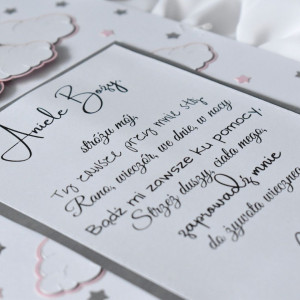 Aniele Boży,
stróżu mój,
Ty zawsze przy mnie stój.
Rano, wieczór, we dnie, w nocy,
Bądź mi zawsze ku pomocy.
Strzeż duszy, ciała mego,
zaprowadź mnie
do żywota wiecznego